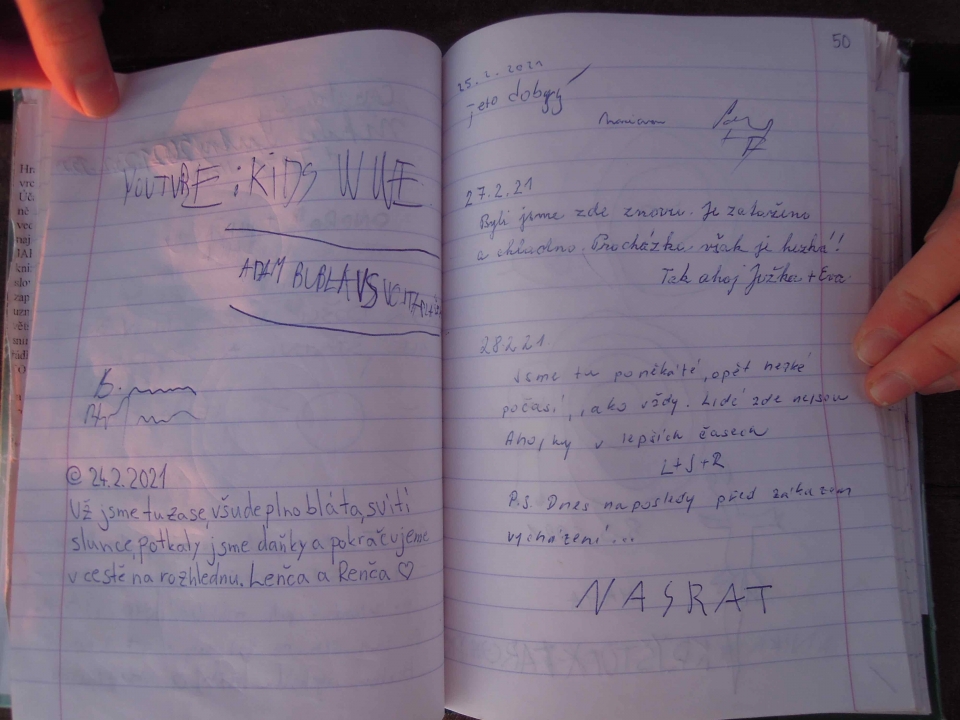 YOUTUBE : KIDS WWE
ADAM BUBLA VS
© 24.2.2021
Už jsme tu zase, všude plno bláta, svítí
slunce, potkaly jsme daňky a pokračujeme
v cestě na rozhlednu. Lenča a Renča ♡
50
25.2.2021
jeto dobrý
27.2.21
Byli jsme zde znovu. Je zataženo
a chladno. Procházka však je hezká!!
Tak ahoj Jožka + Eva
28.2.21
Jsme tu poněkáté, opět hezké
počasí, ako vždy. Lidé zde nejsou
Ahoj ky v lepších časech
L+J+R
P.S. Dnes naposledy před zákazem
vycházení...
NASRAT